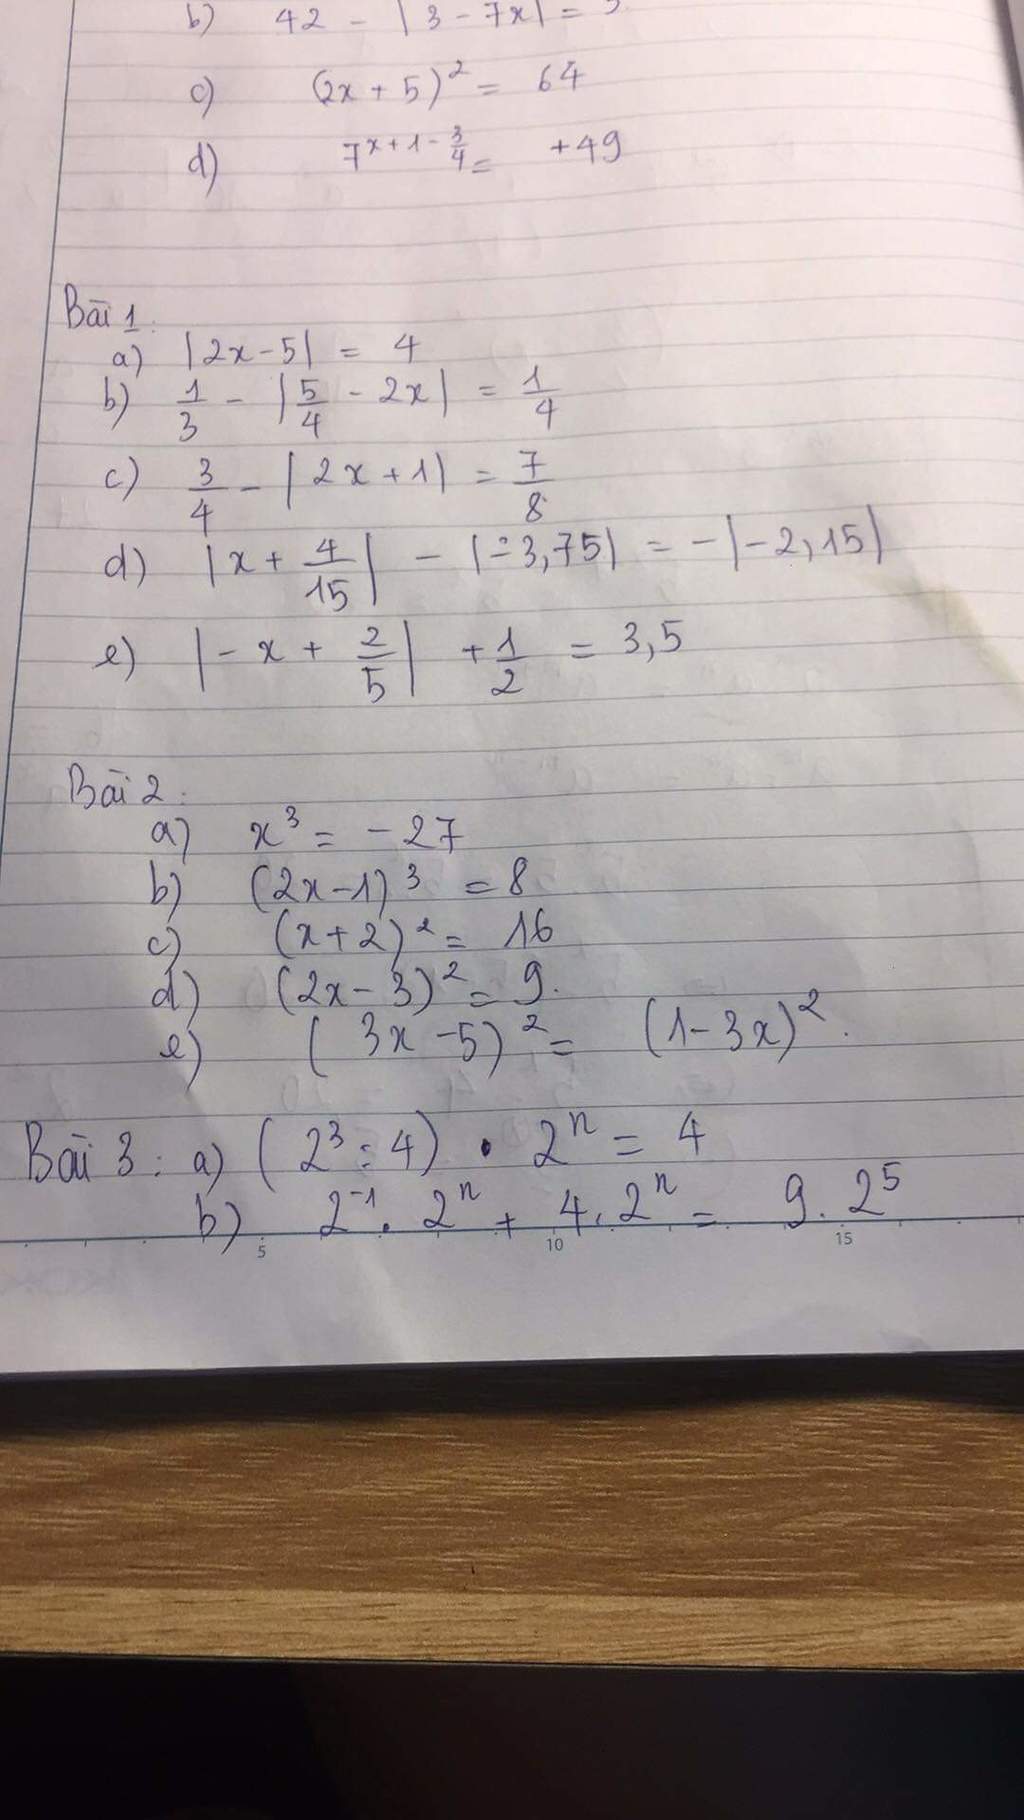 b) 42 - |3 - 7x| =
c) (2x + 5)² = 64
d) 7^{x + 1 - 3/4} = +49
Bài 1:
a) |2x - 5| = 4
b) 1/3 - |5/4 - 2x| = 1/4
c) 3/4 - |2x + 1| = 7/8
d) |x + 4/15| - |-3,75| = -|-2,15|
e) |-x + 2/5| + 1/2 = 3,5
Bài 2:
a) x³ = -27
b) (2x - 1)³ = 8
c) (x + 2)² = 16
d) (2x - 3)² = 9.
e) (3x - 5)² = (1 - 3x)².
Bài 3: a) (2³ : 4) . 2ⁿ = 4
b) 2⁻¹ . 2ⁿ + 4 . 2ⁿ = 9 . 2⁵
5 10 15